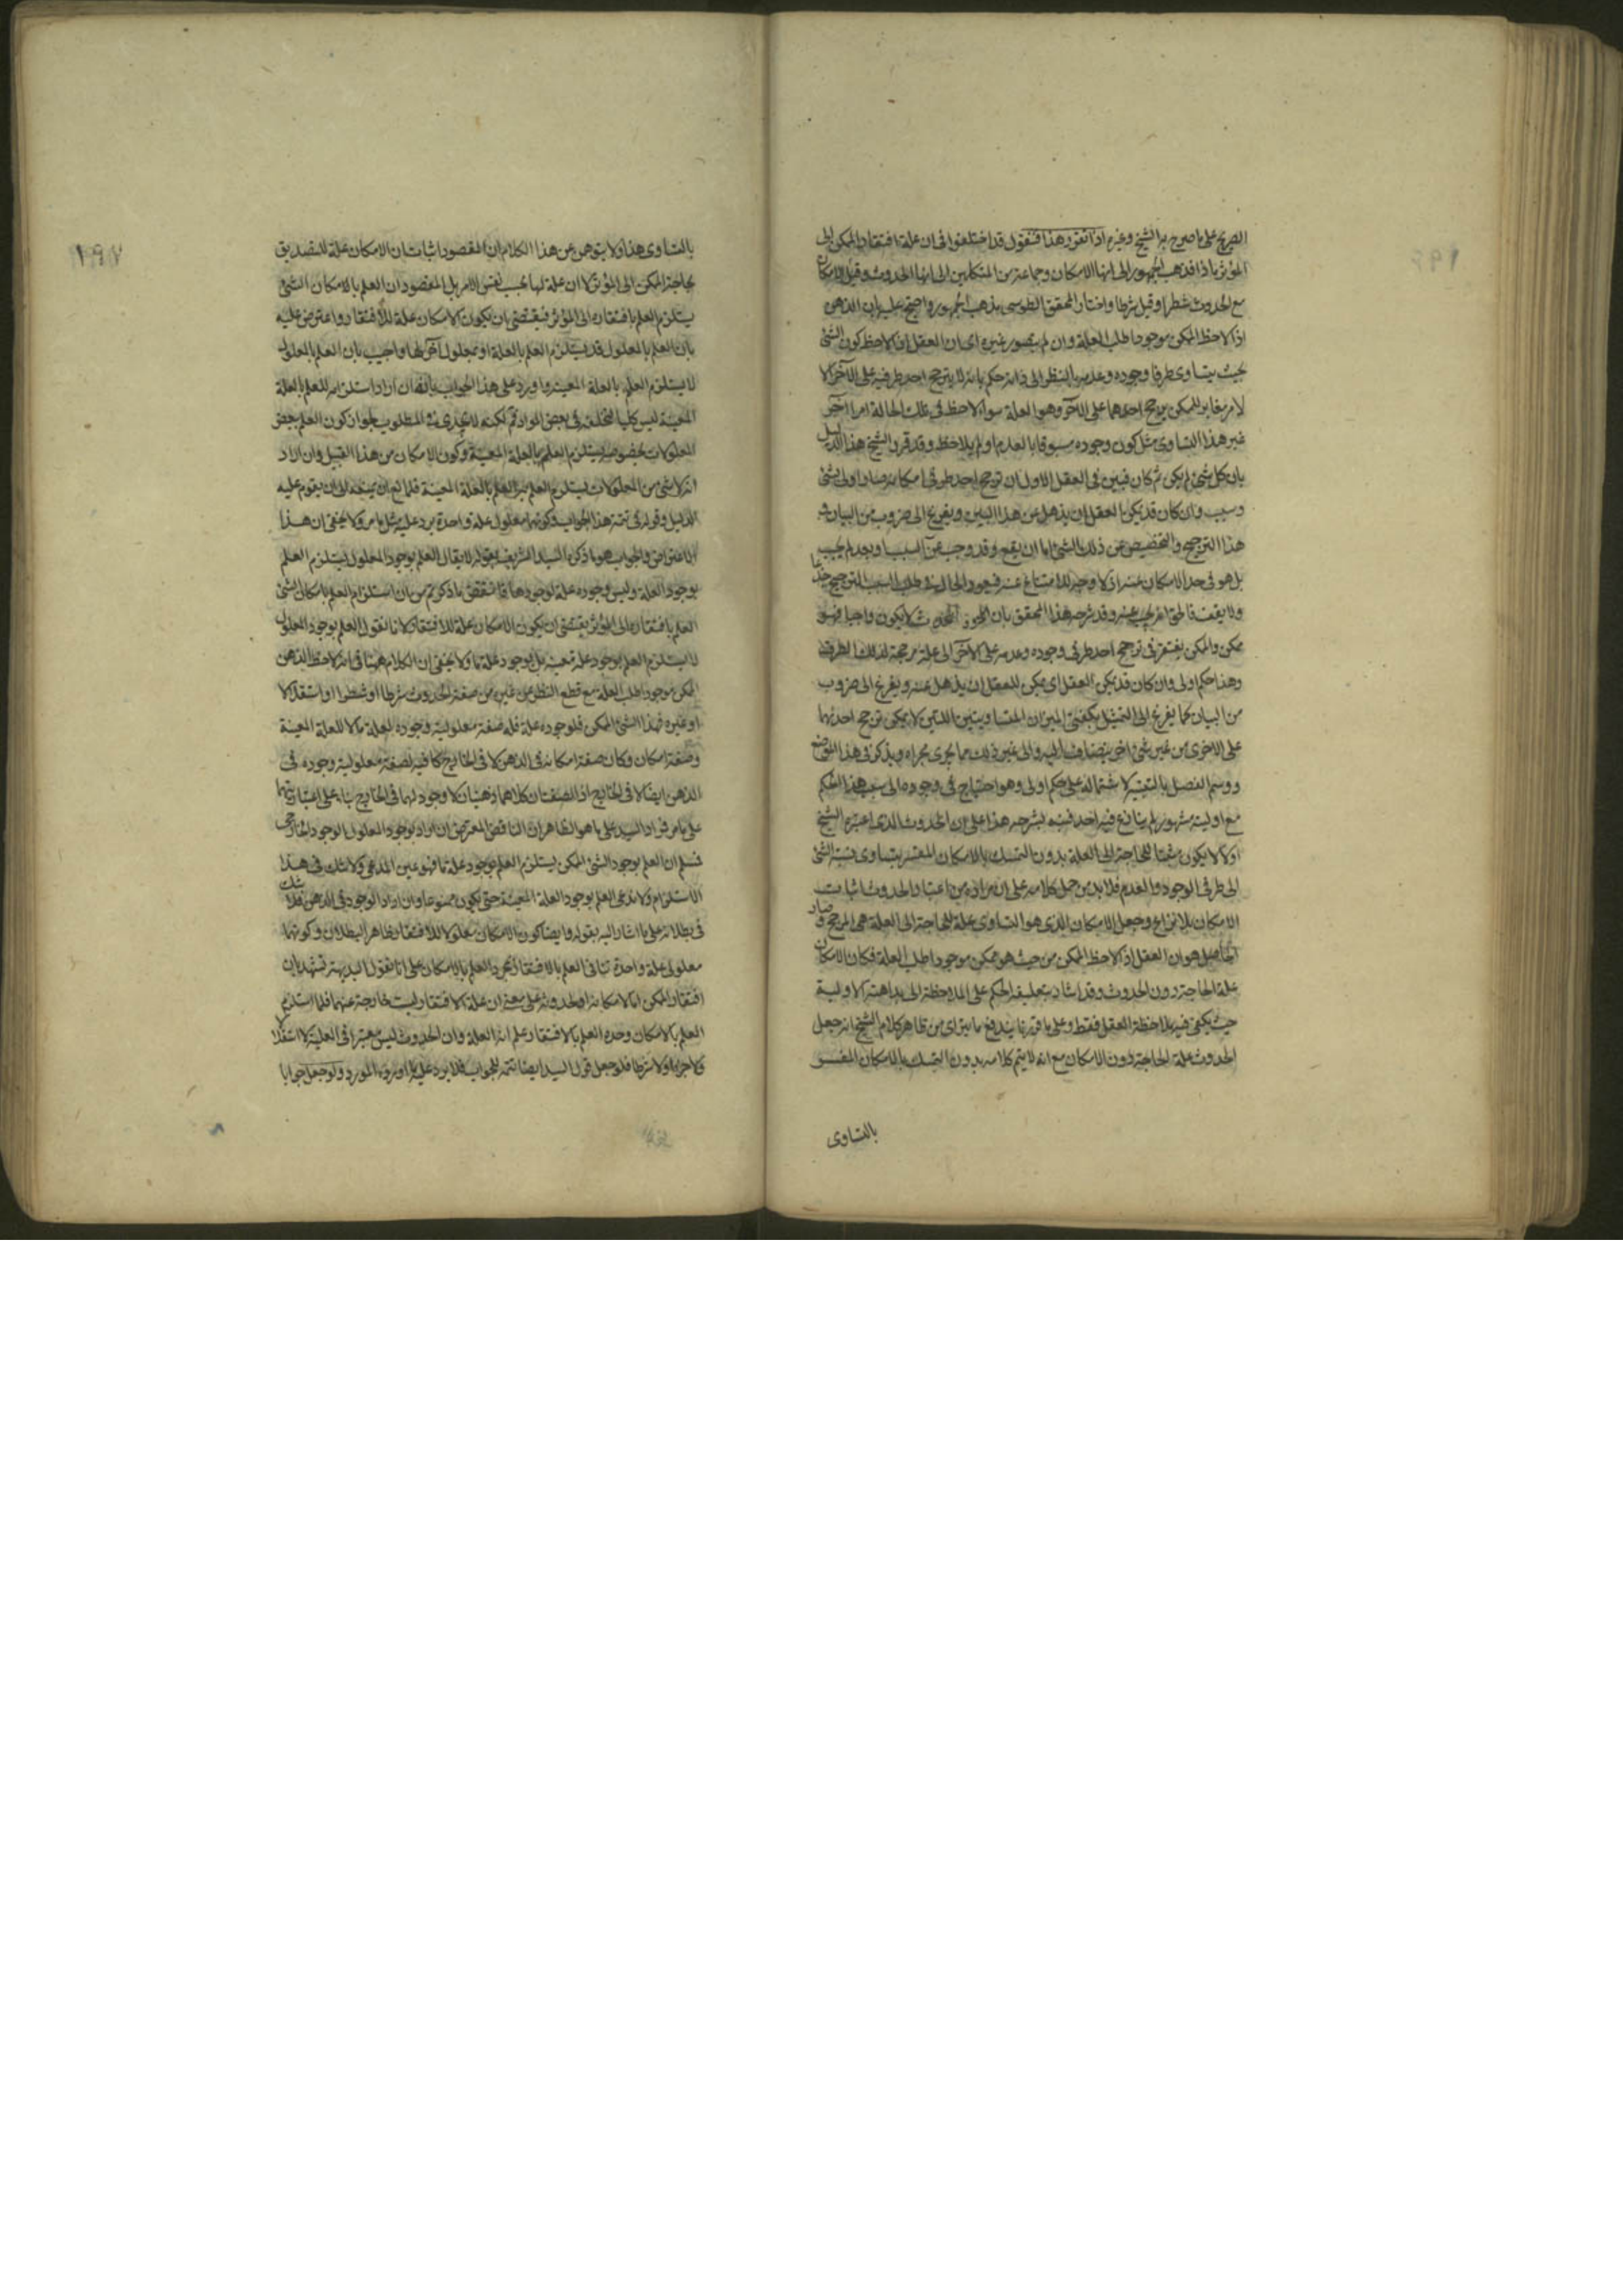 الصريح على ما صرح به الشيخ وغيره اذا تقرر هذا فنقول قد اختلفوا فى ان علة افتقار الممكن الى
المؤثر ماذا فذهب الجمهور الى انها الامكان وجماعة من المتكلمين الى انها الحدوث وقيل الامكان
مع الحدوث شطرا وقيل شرطا واختار المحقق الطوسى مذهب الجمهور واحتج عليه بان الذهن
اذا لاحظ الممكن موجودا طلب العلة وان لم يتصور غيره اى ان العقل اذا لاحظ كون الشئ
بحيث يتساوى طرفا وجوده وعدمه بالنظر الى ذاته حكم بانه لا يترجح احد طرفيه على الآخر الا
لامر مغاير للممكن يرجح احدهما على الآخر وهو العلة سواء لاحظ فى تلك الحالة امرا آخر
غير هذا التساوى مثل كون وجوده مسبوقا بالعدم او لم يلاحظ وقد قرر الشيخ هذا الدليل
بان كل شئ لم يكن ثم كان فبين فى العقل الاول ان ترجح احد طرفى امكانه صار اولى بشئ
وسبب وان كان قد يمكن العقل ان يذهل عن هذا البين ويفزع الى ضروب من البيان و
هذا الترجيح والتخصيص عن ذلك الشئ اما ان يقع وقد وجب عن السبب او بعد لم يجب
بل هو فى حد الامكان عنه اذ لا وجه للامتناع عنه فيعود الحال فى طلب السبب الترجيح جذعا
ولا يقف فالحق انه يجب عنه وقد شرحه هذا المحقق بان الحدوث لا يكون واجبا فهو
ممكن والممكن يفتقر فى ترجح احد طرفى وجوده وعدمه على الآخر الى علة مرجحة لذلك الطرف
وهذا حكم اولى وان كان قد يمكن العقل اى يمكن للعقل ان يذهل عنه ويفزع الى ضروب
من البيان كما يفزع الى التمثيل بكفتى الميزان المتساويتين اللتين لا يمكن ترجح احديهما
على الاخرى من غير شئ آخر ينضاف اليه والى غير ذلك مما يجرى مجراه ويذكر فى هذا الموضع
ووسم الفصل بالتنبيه لاشتماله على حكم اولى وهو احتياج فى وجوده الى سبب هذا الحكم
مع اوليته مشهور لم ينازع فيه احد فنبه بشرحه هذا على ان الحدوث الذى اعتبره الشيخ
اولا لا يكون مثبتا للحاجة الى العلة بدون التمسك بالامكان المفسر بتساوى نسبة الشئ
الى طرفى الوجود والعدم فلا بد من حمل كلامه على ان مراده من اعتبار الحدوث اثبات
الامكان بلا نزاع وجعل الامكان الذى هو التساوى علة للحاجة الى العلة هى المرجح وصار
الحاصل هو ان العقل اذا لاحظ الممكن من حيث هو ممكن موجودا طلب العلة فكان الامكان
علة الحاجة دون الحدوث وقد اشار بتعليقه الحكم على الملاحظة الى بداهته الاولية
حيث يكفى فيه ملاحظة العقل فقط وعلى ما قررنا يندفع ما يترآى من ظاهر كلام الشيخ انه جعل
الحدوث علة الحاجة دون الامكان مع انه لا يتم كلامه بدون التمسك بالامكان المفسر
بالتساوى
بالتساوى هذا ولا يتوهمن من هذا الكلام ان المقصود اثبات ان الامكان علة للتصديق
بحاجة الممكن الى المؤثر لا ان علة لها بحسب نفس الامر بل المقصود ان العلم بالامكان الشئ
يستلزم العلم بافتقاره الى المؤثر فيقتضى بان يكون الامكان علة للافتقار واعترض عليه
بان العلم بالمعلول قد يستلزم العلم بالعلة او بمعلول آخر لها واجيب بان العلم بالمعلول
لا يستلزم العلم بالعلة المعينة واورد على هذا الجواب بانه ان اراد استلزامه للعلم بالعلة
المعينة ليس كليا لتخلفه فى بعض المواد ثم لكنه لا يجدى فى المطلوب لجواز كون العلم ببعض
المعلولات بخصوصه يستلزم العلم بالعلة المعينة وكون الامكان من هذا القبيل وان اراد
انه لا شئ من المعلولات يستلزم العلم به العلم بالعلة المعينة فللمانع ان يمنعه الى ان يقوم عليه
الدليل وقوله فى تتمة هذا الجواب وكونهما معلول علة واحدة يرد عليه مثل ما مر ولا يخفى ان هذا
الاعتراض والجواب هو ما ذكره السيد الشريف بقوله لا يقال العلم بوجود المعلول يستلزم العلم
بوجود العلة وليس وجوده علة لوجودها فانتقض ما ذكرتم من ان استلزام العلم بامكان الشئ
العلم بافتقاره الى المؤثر يقتضى ان يكون الامكان علة للافتقار لانا نقول العلم بوجود المعلول
لا يستلزم العلم بوجود علة معينة بل بوجود علة ما ولا يخفى ان الكلام ههنا فى انه لاحظ الذهن
الممكن موجودا طلب العلة مع قطع النظر عن غيره من صفة الحدوث شرطا او شطرا او استقلالا
او غيره فهذا الشئ الممكن فلوجوده علة فله صفة معلولية وجوده لعلة ما لا للعلة المعينة
وصفة امكان وكان صفة امكانه فى الذهن لا فى الخارج كافية لصفة معلولية وجوده فى
الذهن ايضا لا فى الخارج اذ الصفتان كلاهما ذهنيان لا وجود لهما فى الخارج بناء على اعتباريتهما
على ما مر فمراد السيد على ما هو الظاهر ان الناقض المعترض ان اراد بوجود المعلول الوجود الخارجى
فسلم ان العلم بوجود الشئ الممكن يستلزم العلم بوجود علة ما فهو عين المدعى ولا شك فى هذا
الاستلزام ولا ندعى العلم بوجود العلة المعينة حتى يكون ممنوعا وان اراد الوجود فى الذهن فلا شك
فى بطلانه على ما اشار اليه بقوله وايضا كون الامكان معلولا للافتقار ظاهر البطلان وكونهما
معلولى علة واحدة تنافى العلم بالافتقار بمجرد العلم بالامكان على انا نقول البديهة تشهد بان
افتقار الممكن اما لامكانه او لحدوثه على معنى ان علة الافتقار ليست خارجة عنهما فلما استلزم
العلم بالامكان وحده العلم بالافتقار علم انه العلة وان الحدوث ليس معتبرا فى العلية لا استقلالا
ولا جزءا ولا شرطا فلو جعل قول السيد ايضا تتمة للجواب فلا يرد عليه ما اورده المورد ولو جعل جوابا